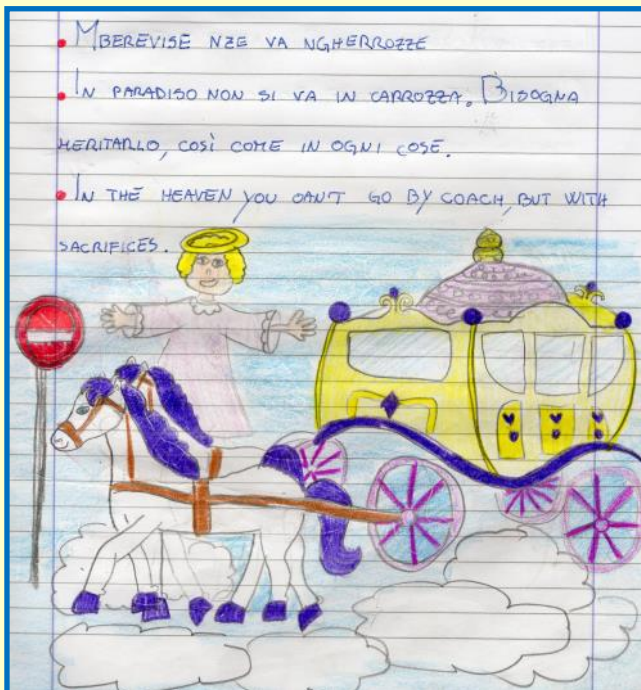 • MBEREVISE NZE VA NGHERROZZE
• IN PARADISO NON SI VA IN CARROZZA. BISOGNA
MERITARLO, COSÌ COME IN OGNI COSE.
• IN THE HEAVEN YOU CAN'T GO BY COACH, BUT WITH
SACRIFICES.